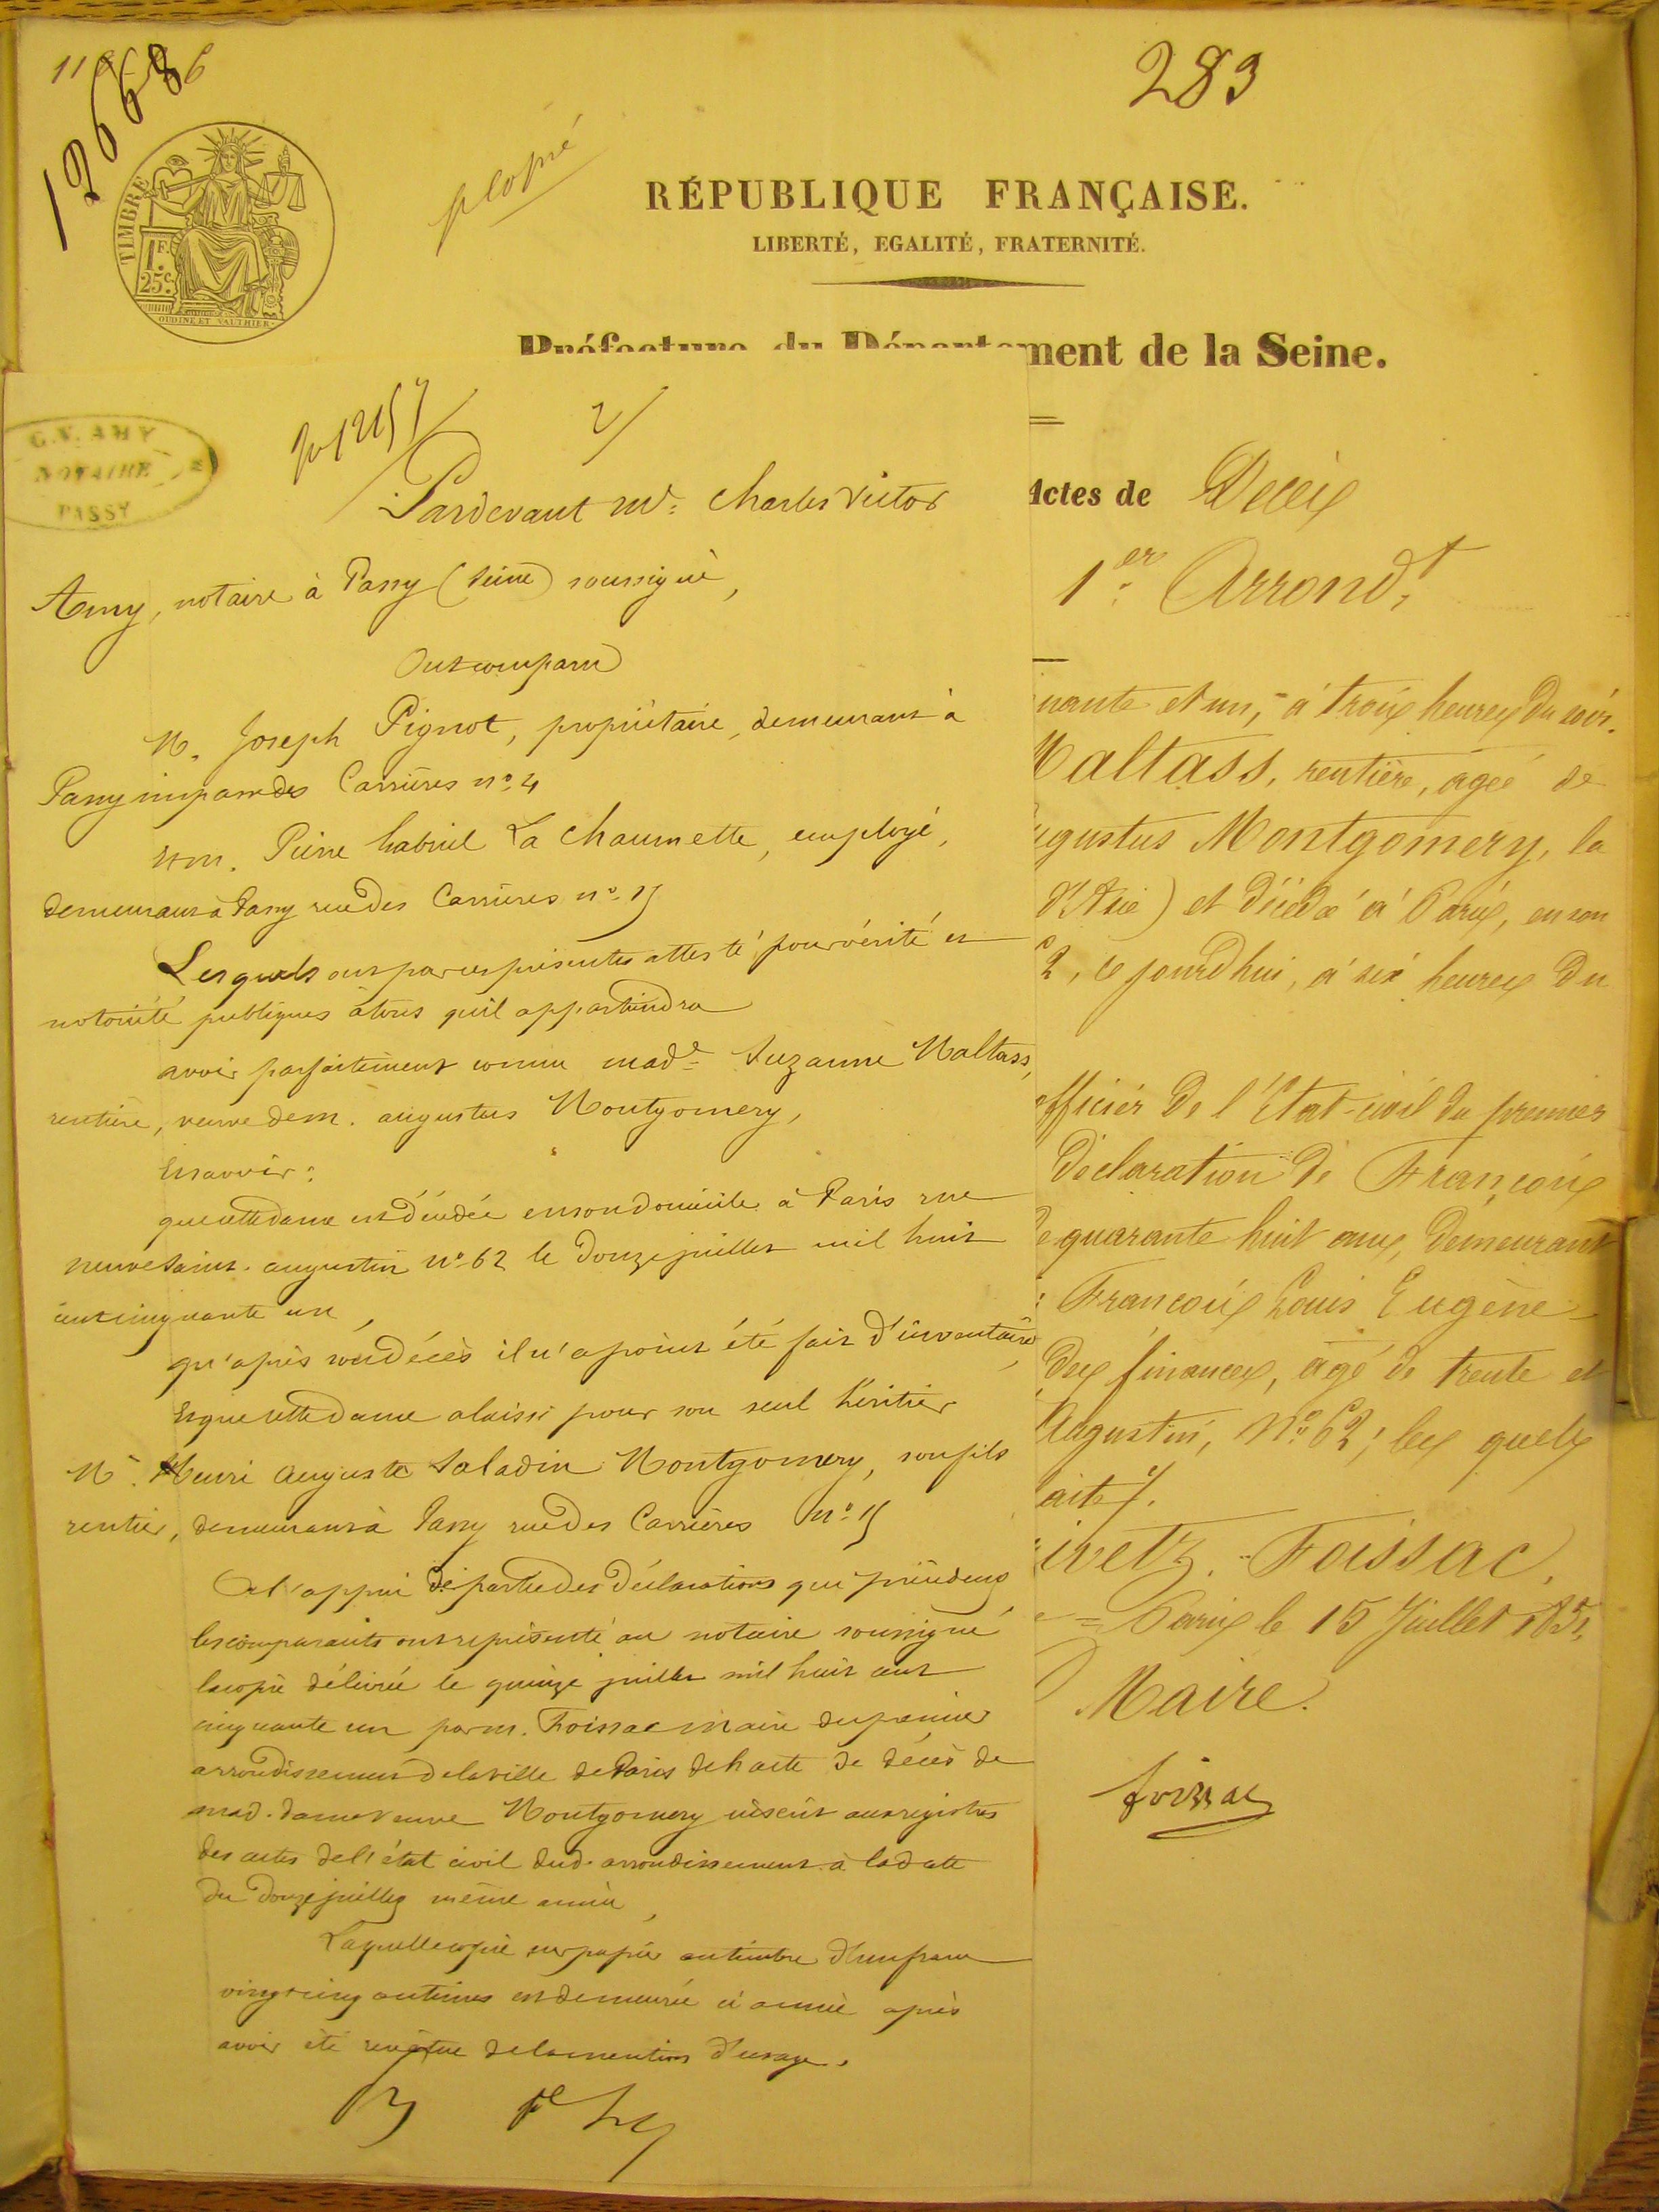 283
126686
p copié
TIMBRE
1F.
25c.
OUDINE ET VAUTHIER
RÉPUBLIQUE FRANÇAISE.
LIBERTÉ, EGALITÉ, FRATERNITÉ.
Préfecture du Département de la Seine.
C.V. AMY
NOTAIRE
PASSY
Pardevant Me. Charles Victor
Amy, notaire à Passy (Seine) soussigné,
Ont comparu
M. Joseph Pignot, propriétaire, demeurant à
Passy impasse des Carrières no. 4
Et M. Pierre Gabriel La Chaumette, employé,
demeurant à Passy rue des Carrières no. 15
Lesquels ont par ces présentes attesté pour vérité et
notoriété publiques à tous qu'il appartiendra
avoir parfaitement connu made. Suzanne Maltass,
rentière, veuve de M. augustus Montgomery,
Et savoir:
que cette dame est décédée en son domicile à Paris rue
neuve saint. augustin no. 62 le douze juillet mil huit
cent cinquante un,
qu'après son décès il n'a point été fait d'inventaire,
Et que cette dame a laissé pour son seul héritier
M. Henri Auguste Saladin Montgomery, son fils
rentier, demeurant à Passy rue des Carrières No. 15
A l'appui de partie des déclarations qui précèdent
les comparants ont représenté au notaire soussigné
la copie délivrée le quinze juillet mil huit cent
cinquante un par M. Foissac maire du premier
arrondissement de la ville de Paris de l'acte de décès de
mad. dame veuve Montgomery inscrit aux registres
des actes de l'état civil dud. arrondissement à la date
du douze juillet même année,
Laquelle copie sur papier au timbre d'un franc
vingt cinq centimes est demeurée ci annexée après
avoir été revêtue de la mention d'usage.
Actes de Décès
1er. Arrondt.
uante et un, à trois heures du soir.
Maltass, rentière, agée de
ugustus Montgomery, la
d'Asie) et décédée à Paris, en son
62, ce jourd'hui, à six heures du
officier de l'Etat-civil du premier
déclaration de François
de quarante huit ans, demeurant
François Louis Eugène
des finances, agé de trente et
Augustin, No. 62; les quels
aite.
ivetz. Foissac.
Paris le 15 Juillet 1851,
Maire.
Foissac